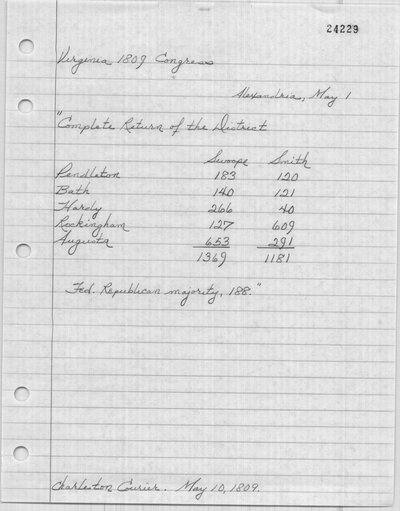 24229
Virginia 1809 Congress
Alexandria, May 1
"Complete Return of the District
Swoope Smith
Pendleton 183 120
Bath 140 121
Hardy 266 40
Rockingham 127 609
Augusta 653 291
1369 1181
Fed. Republican majority, 188."
Charleston Courier. May 10, 1809.